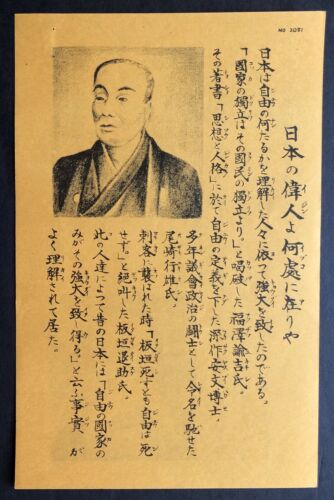 NO 2051
日本の偉人よ何處に在りや
日本は自由の何たるかを理解した人々に依つて強大を致したのである。
「國家の獨立はその國民の獨立より。」と喝破した福澤諭吉氏。
その著書「思想と人格」に於て自由の定義を下した深作安文博士。
多年議會政治の闘士として令名を馳せた
尾崎行雄氏。
刺客に襲はれた時「板垣死すとも自由は死
せず。」と絶叫した板垣退助氏。
此の人達によつて昔の日本には「自由の國家の
みがその強大を致し得る」と云ふ事實が
よく理解されて居た。